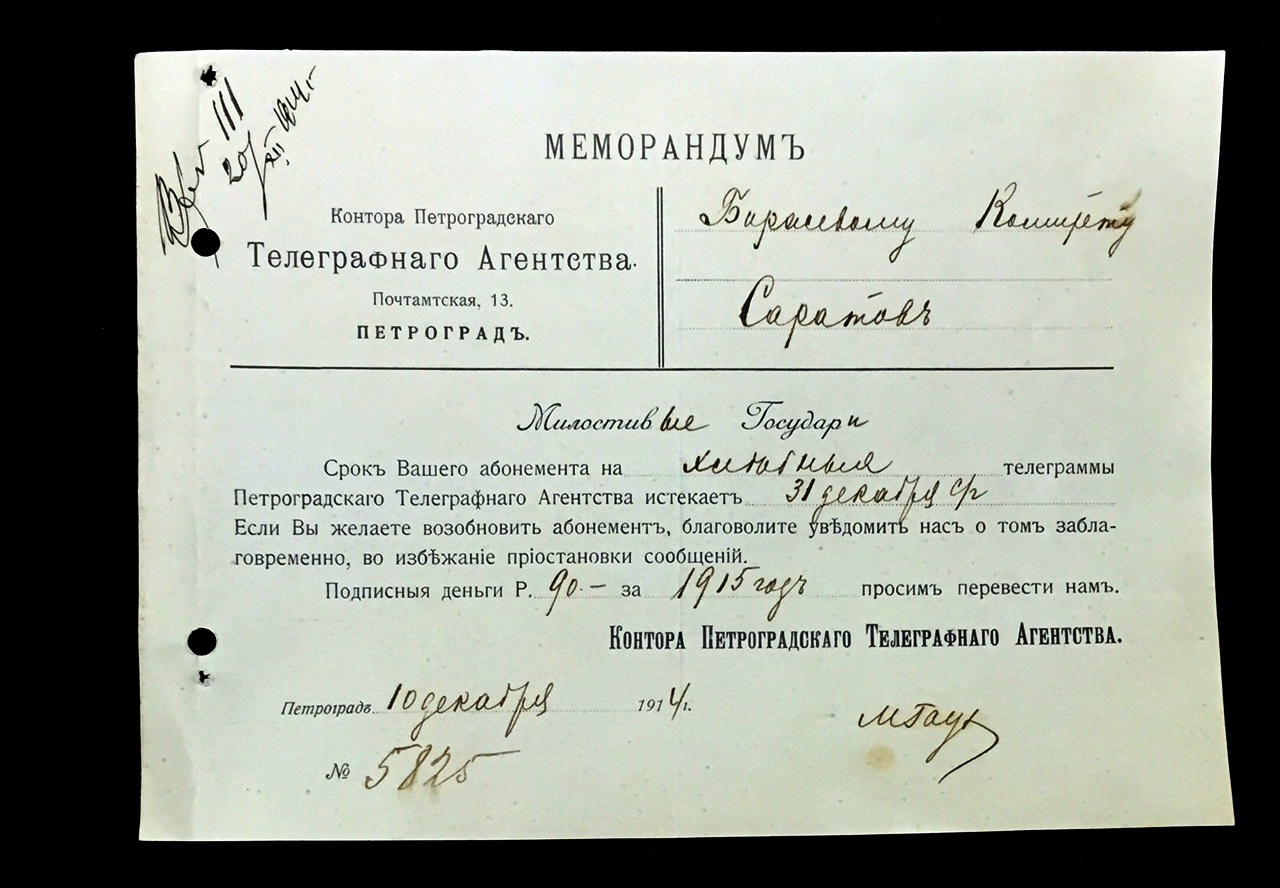 111
20/XII 1914 г.
МЕМОРАНДУМЪ
Контора Петроградскаго
Телеграфнаго Агентства.
Почтамтская, 13.
ПЕТРОГРАДЪ.
Биржевому Комитету
Саратовъ
Милостивые Государи
Срокъ Вашего абонемента на хлѣбныя телеграммы
Петроградскаго Телеграфнаго Агентства истекаетъ 31 декабря с/г
Если Вы желаете возобновить абонементъ, благоволите увѣдомить насъ о томъ забла-
говременно, во избѣжаніе пріостановки сообщеній.
Подписныя деньги Р. 90.– за 1915 годъ просимъ перевести намъ.
КОНТОРА ПЕТРОГРАДСКАГО ТЕЛЕГРАФНАГО АГЕНТСТВА.
Петроградъ 10 декабря 1914 г.
№ 5825